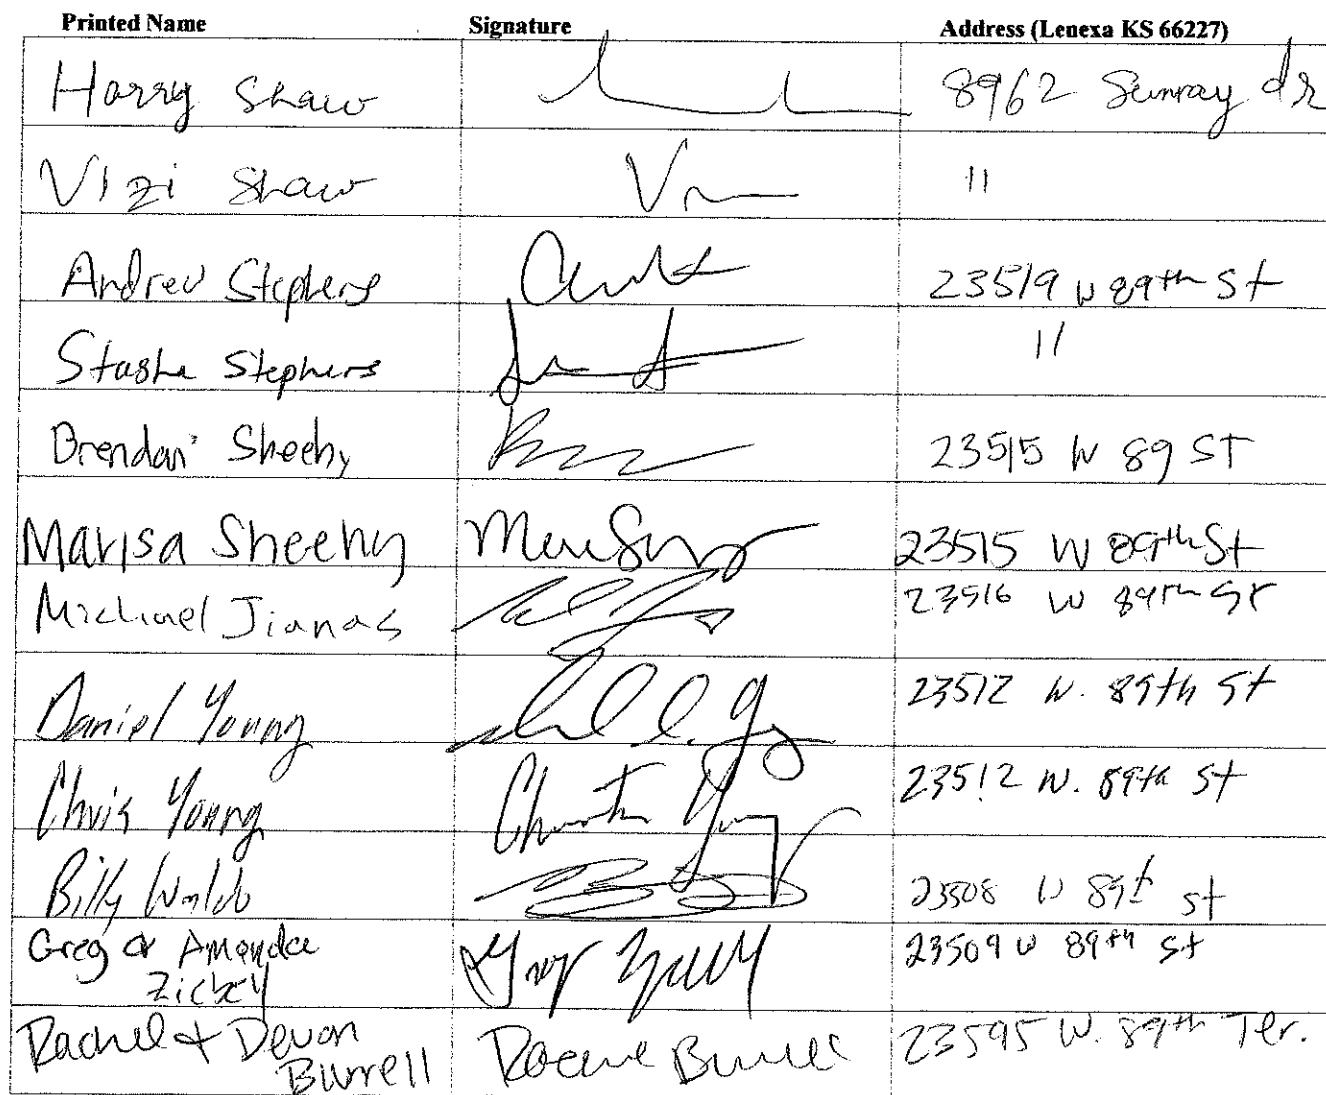 Printed Name Signature Address (Lenexa KS 66227)
Harry Shaw 8962 Sunray dr
Vizi Shaw 11
Andrew Stephens 23519 W 89th St
Stasha Stephens 11
Brendan Sheehy 23515 W 89 ST
Marisa Sheehy 23515 W 89th St
Michael Jianas 23516 W 89th St
Daniel Young 23512 W. 89th St
Chris Young 23512 W. 89th St
Billy 23508 W 89th St
Greg & Amanda 23509 W 89th St
Rachel & Devon 23595 W. 89th Ter.
Burrell